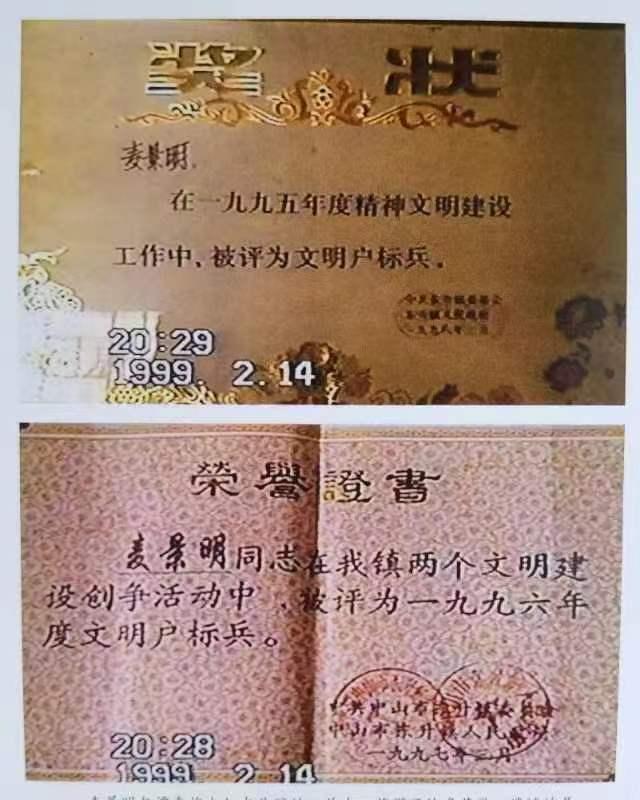 奖状
麦景明
在一九九五年度精神文明建设
工作中、被评为文明户标兵。
20:29
1999. 2.14
榮譽證書
麦景明同志在我镇两个文明建
设创争活动中,被评为一九九六年
度文明户标兵。
中山市人民
一九九七年二月
20:28
1999. 2.14